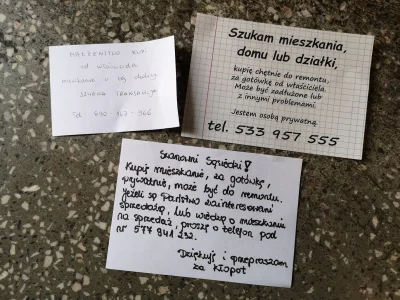 MAŁŻEŃSTWO KUPI
od właściciela
mieszkanie w tej okolicy
SZYBKA TRANSAKCJA
Tel
Szukam mieszkania,
domu lub działki,
kupię chętnie do remontu,
za gotówkę od właściciela.
Może być zadłużone lub
z innymi problemami.
Jestem osobą prywatną
tel. 533 957 555
Szanowni Sąsiedzi!
Kupię mieszkanie, za gotówkę,
prywatnie, może być do remontu.
Jeżeli są Państwo zainteresowani
sprzedażą, lub wiedzą o mieszkaniu
na sprzedaż, proszę o telefon pod
nr 577 941 232.
Dziękuję i przepraszam
za kłopot